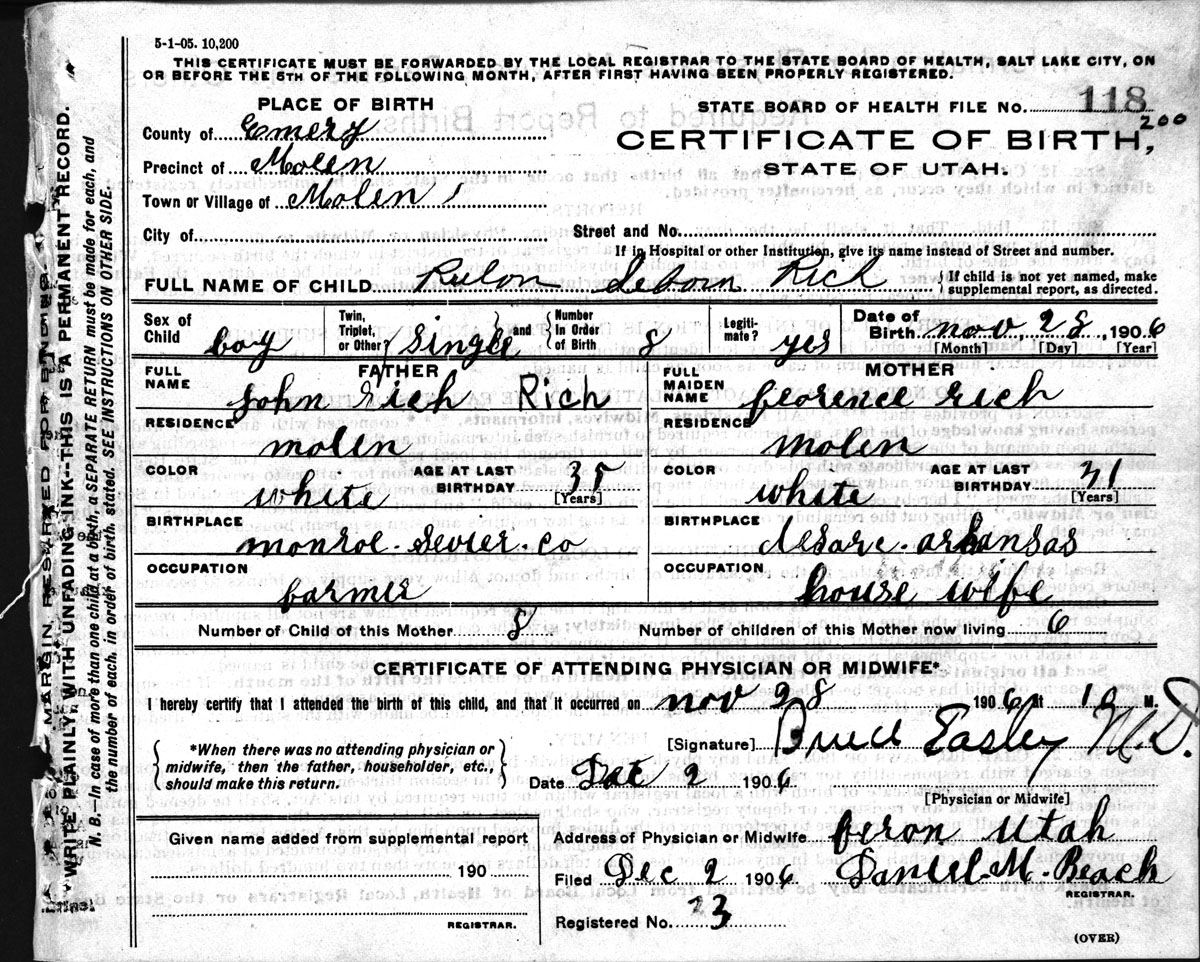 5-1-05. 10,200
THIS CERTIFICATE MUST BE FORWARDED BY THE LOCAL REGISTRAR TO THE STATE BOARD OF HEALTH, SALT LAKE CITY, ON
OR BEFORE THE 5TH OF THE FOLLOWING MONTH, AFTER FIRST HAVING BEEN PROPERLY REGISTERED.
PLACE OF BIRTH
STATE BOARD OF HEALTH FILE NO. 118
200
County of Emery
CERTIFICATE OF BIRTH,
Precinct of Molen
STATE OF UTAH.
Town or Village of Molen
City of Street and No.
If in Hospital or other Institution, give its name instead of Street and number.
FULL NAME OF CHILD Rulon Seborn Rich {If child is not yet named, make supplemental report, as directed.
Sex of Child boy Twin, Triplet, or Other? Single and Number In Order of Birth 8 Legiti-mate? yes Date of Birth nov 28, 1906
[Month] [Day] [Year]
FATHER MOTHER
FULL NAME John Rich Rich FULL MAIDEN NAME florence rich
RESIDENCE molen RESIDENCE molen
COLOR white AGE AT LAST BIRTHDAY 35 [Years] COLOR white AGE AT LAST BIRTHDAY 31 [Years]
BIRTHPLACE monroe. Sevier. co BIRTHPLACE desarc. arkansas
OCCUPATION farmer OCCUPATION house wife
Number of Child of this Mother 8 Number of children of this Mother now living 6
CERTIFICATE OF ATTENDING PHYSICIAN OR MIDWIFE*
I hereby certify that I attended the birth of this child, and that it occurred on nov 28 1906 At M.
*When there was no attending physician or midwife, then the father, householder, etc., should make this return.
[Signature] Bruce Easley M.D.
Date Dec 2 1906
[Physician or Midwife]
Given name added from supplemental report
190
REGISTRAR.
Address of Physician or Midwife feron Utah
Filed Dec 2 1906 Daniel. M. Beach
REGISTRAR.
Registered No. 23
(OVER)
MARGIN RESERVED FOR BINDING.
WRITE PLAINLY WITH UNFADING INK--THIS IS A PERMANENT RECORD.
N. B.—In case of more than one child at a birth, a SEPARATE RETURN must be made for each, and
the number of each, in order of birth, stated. SEE INSTRUCTIONS ON OTHER SIDE.